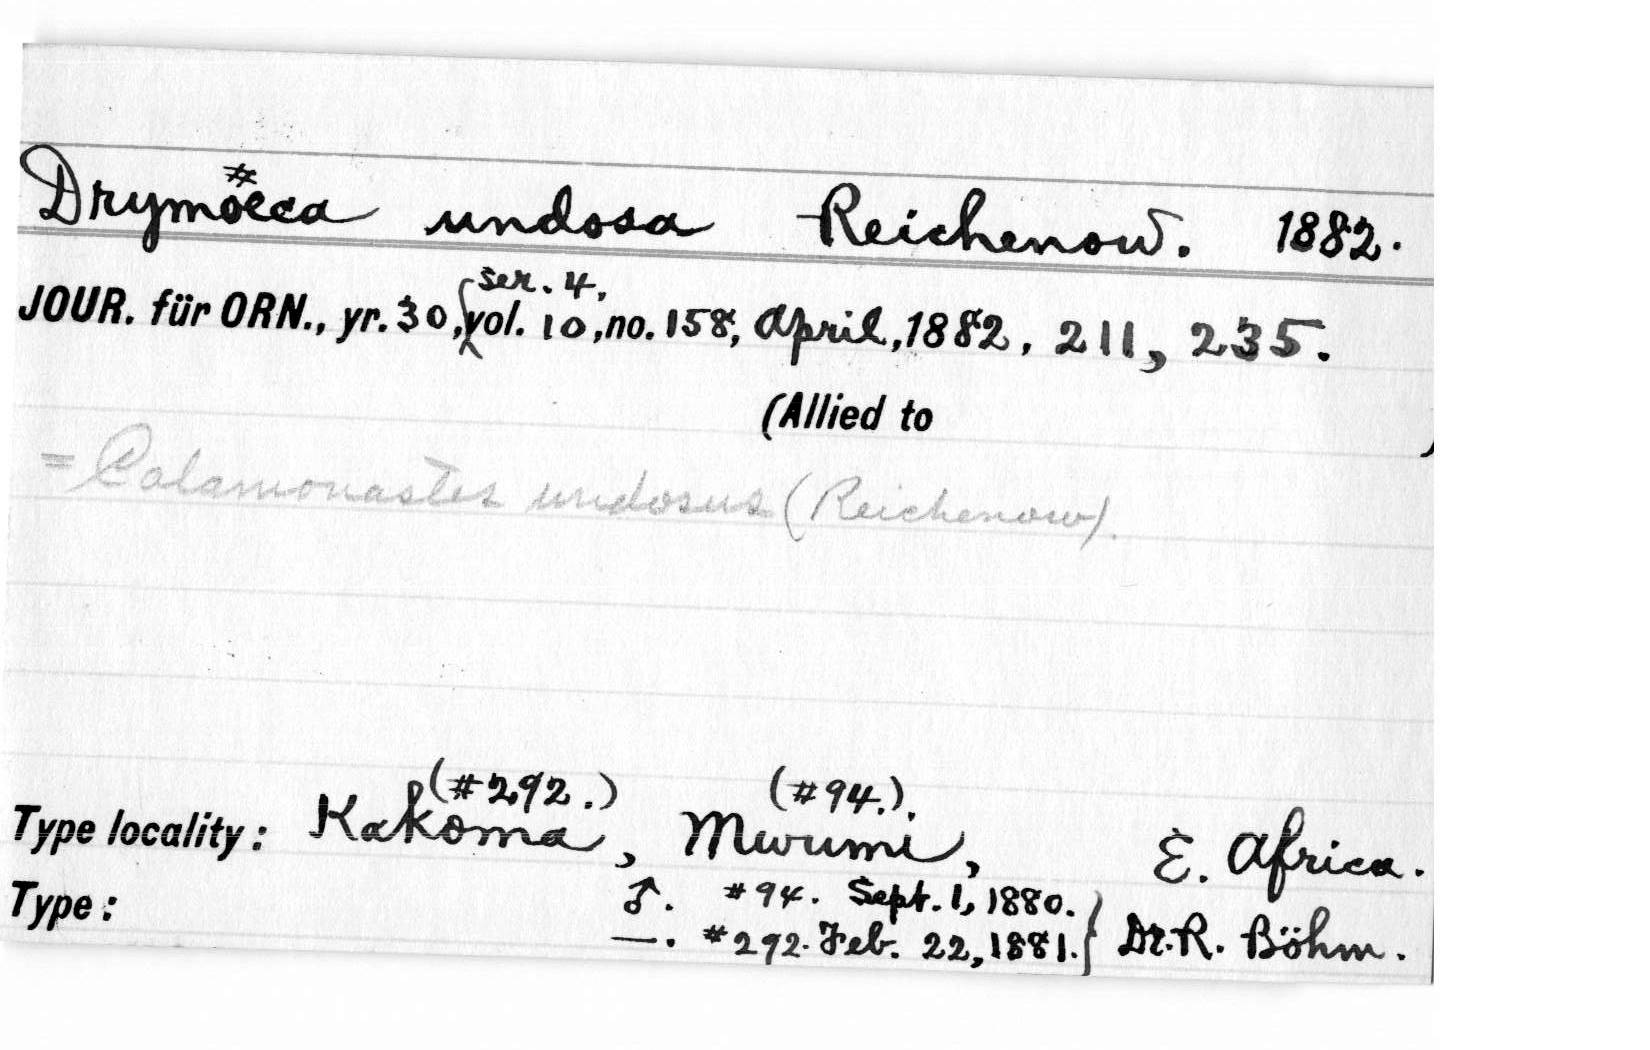 Drymöeca undosa Reichenow. 1882.
JOUR. für ORN., yr. 30, ser. 4, vol. 10, no. 158, April, 1882, 211, 235.
(Allied to )
= Calamonastes undosus (Reichenow).
(#292.) (#94.).
Type locality: Kakoma, Mwumi, E. Africa.
Type: ♂. #94. Sept. 1, 1880.
—. #292. Feb. 22, 1881. } Dr. R. Böhm.